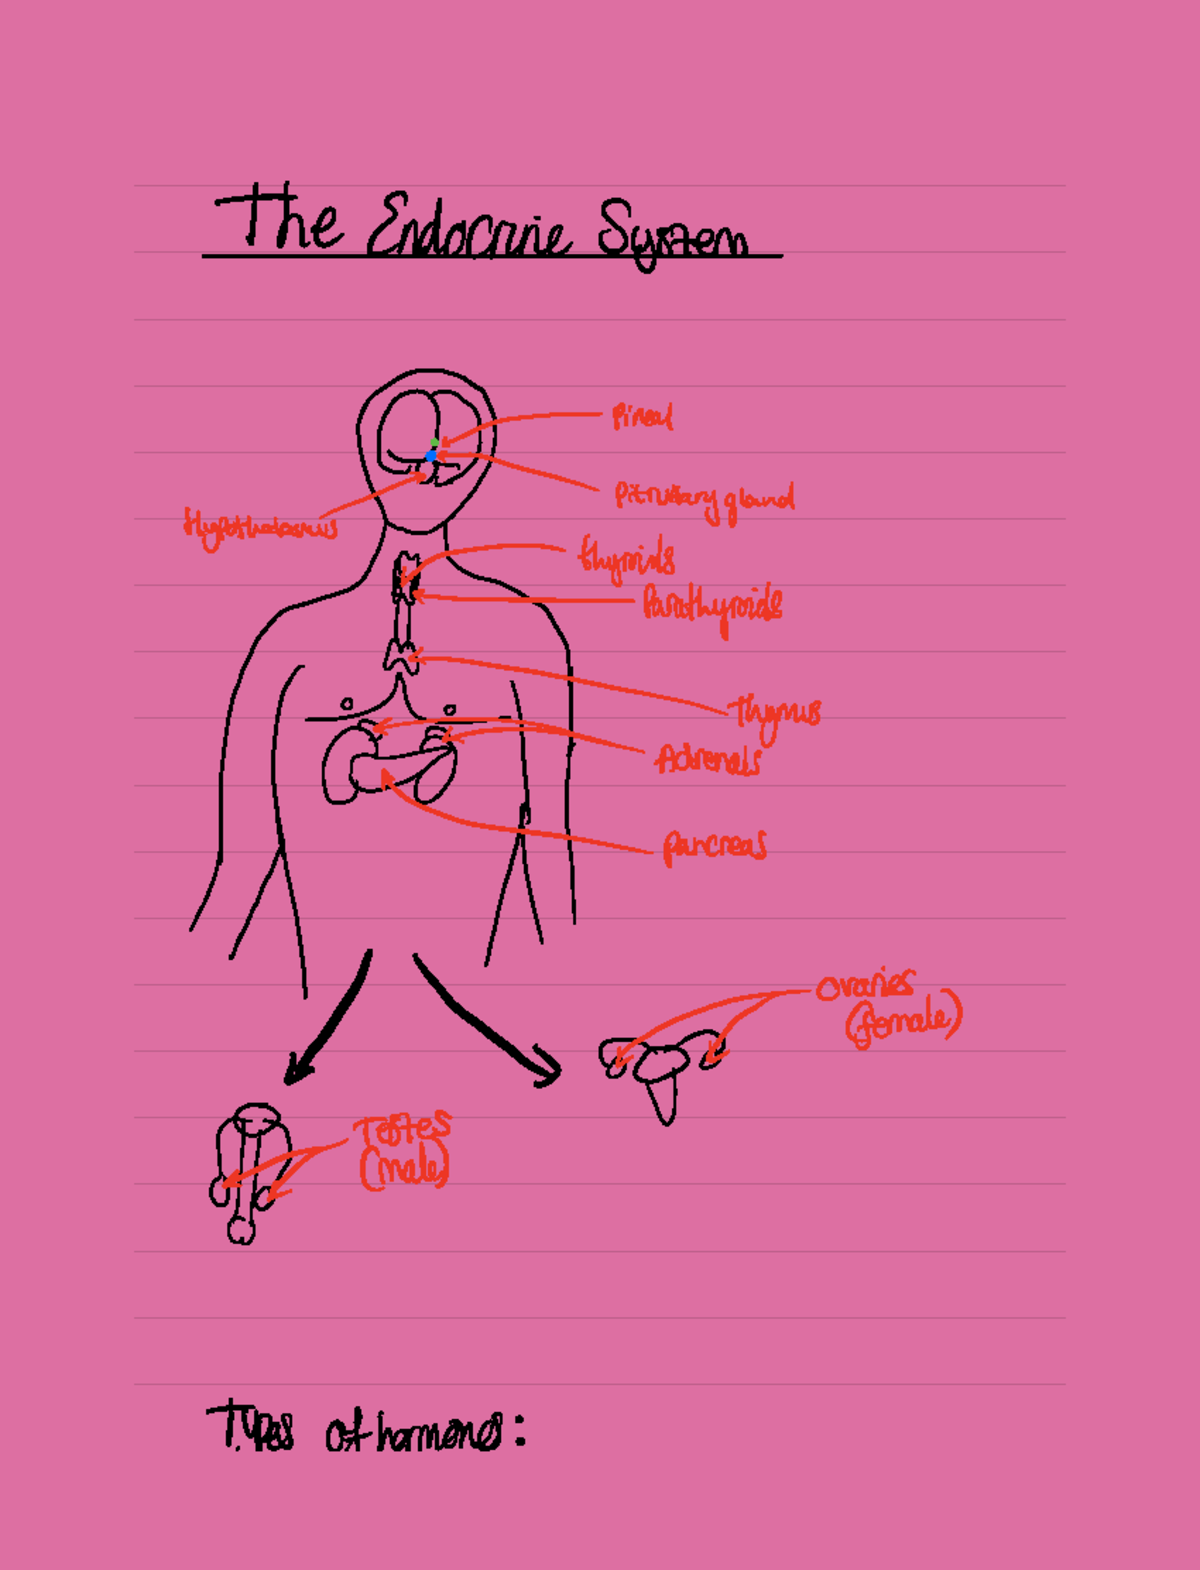 The Endocrine System
Pineal
Pituitary gland
Hypothalamus
thyroids
Parathyroids
Thymus
Adrenals
pancreas
Ovaries
(female)
Testes
(male)
Types of hormones: